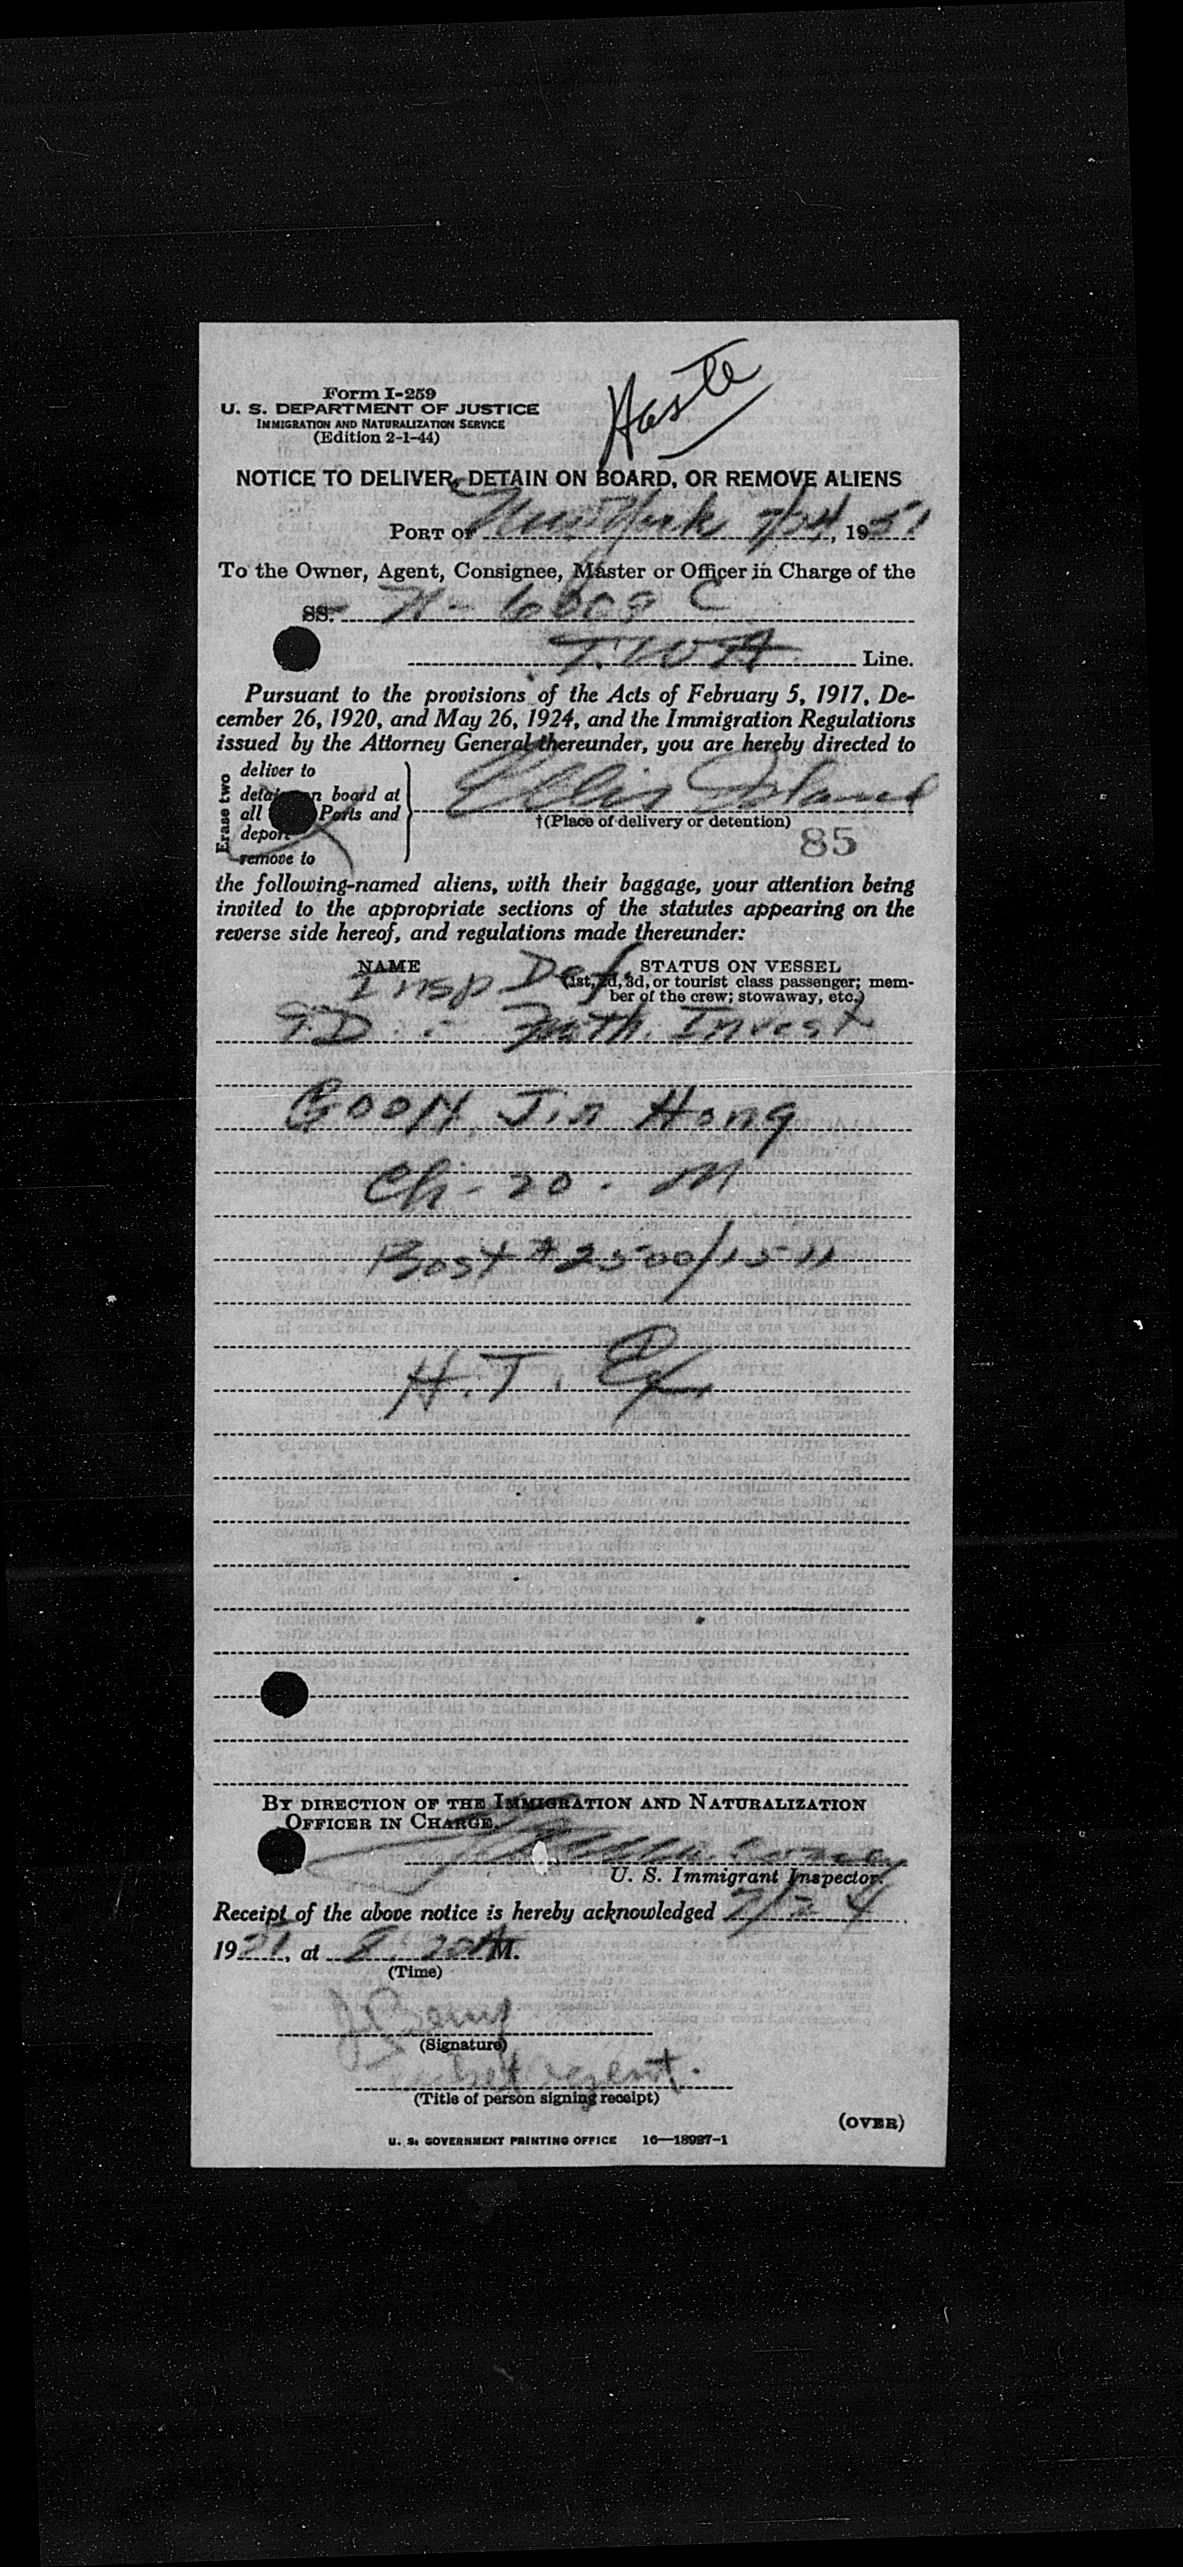 Haste
Form I-259
U. S. DEPARTMENT OF JUSTICE
IMMIGRATION AND NATURALIZATION SERVICE
(Edition 2-1-44)
NOTICE TO DELIVER, DETAIN ON BOARD, OR REMOVE ALIENS
PORT OF New York 7/24, 1951
To the Owner, Agent, Consignee, Master or Officer in Charge of the
SS. N-6008 C
T.W.A Line.
Pursuant to the provisions of the Acts of February 5, 1917, De-
cember 26, 1920, and May 26, 1924, and the Immigration Regulations
issued by the Attorney General thereunder, you are hereby directed to
Erase two
deliver to
detain on board at
all Ports and
deport
remove to
Ellis Island
†(Place of delivery or detention)
85
the following-named aliens, with their baggage, your attention being
invited to the appropriate sections of the statutes appearing on the
reverse side hereof, and regulations made thereunder:
NAME STATUS ON VESSEL
(1st, 2d, 3d, or tourist class passenger; mem-
ber of the crew; stowaway, etc.)
Insp Def.
T.D. :- Furth. Invest
GOON, Jin Hong
Ch - 20 - M
Bost # 2500/1511
H.T.
BY DIRECTION OF THE IMMIGRATION AND NATURALIZATION
OFFICER IN CHARGE.
U. S. Immigrant Inspector.
Receipt of the above notice is hereby acknowledged 7/24
1951, at 8:20 A M.
(Time)
(Signature)
agent.
(Title of person signing receipt)
(OVER)
U. S. GOVERNMENT PRINTING OFFICE 16—18927-1